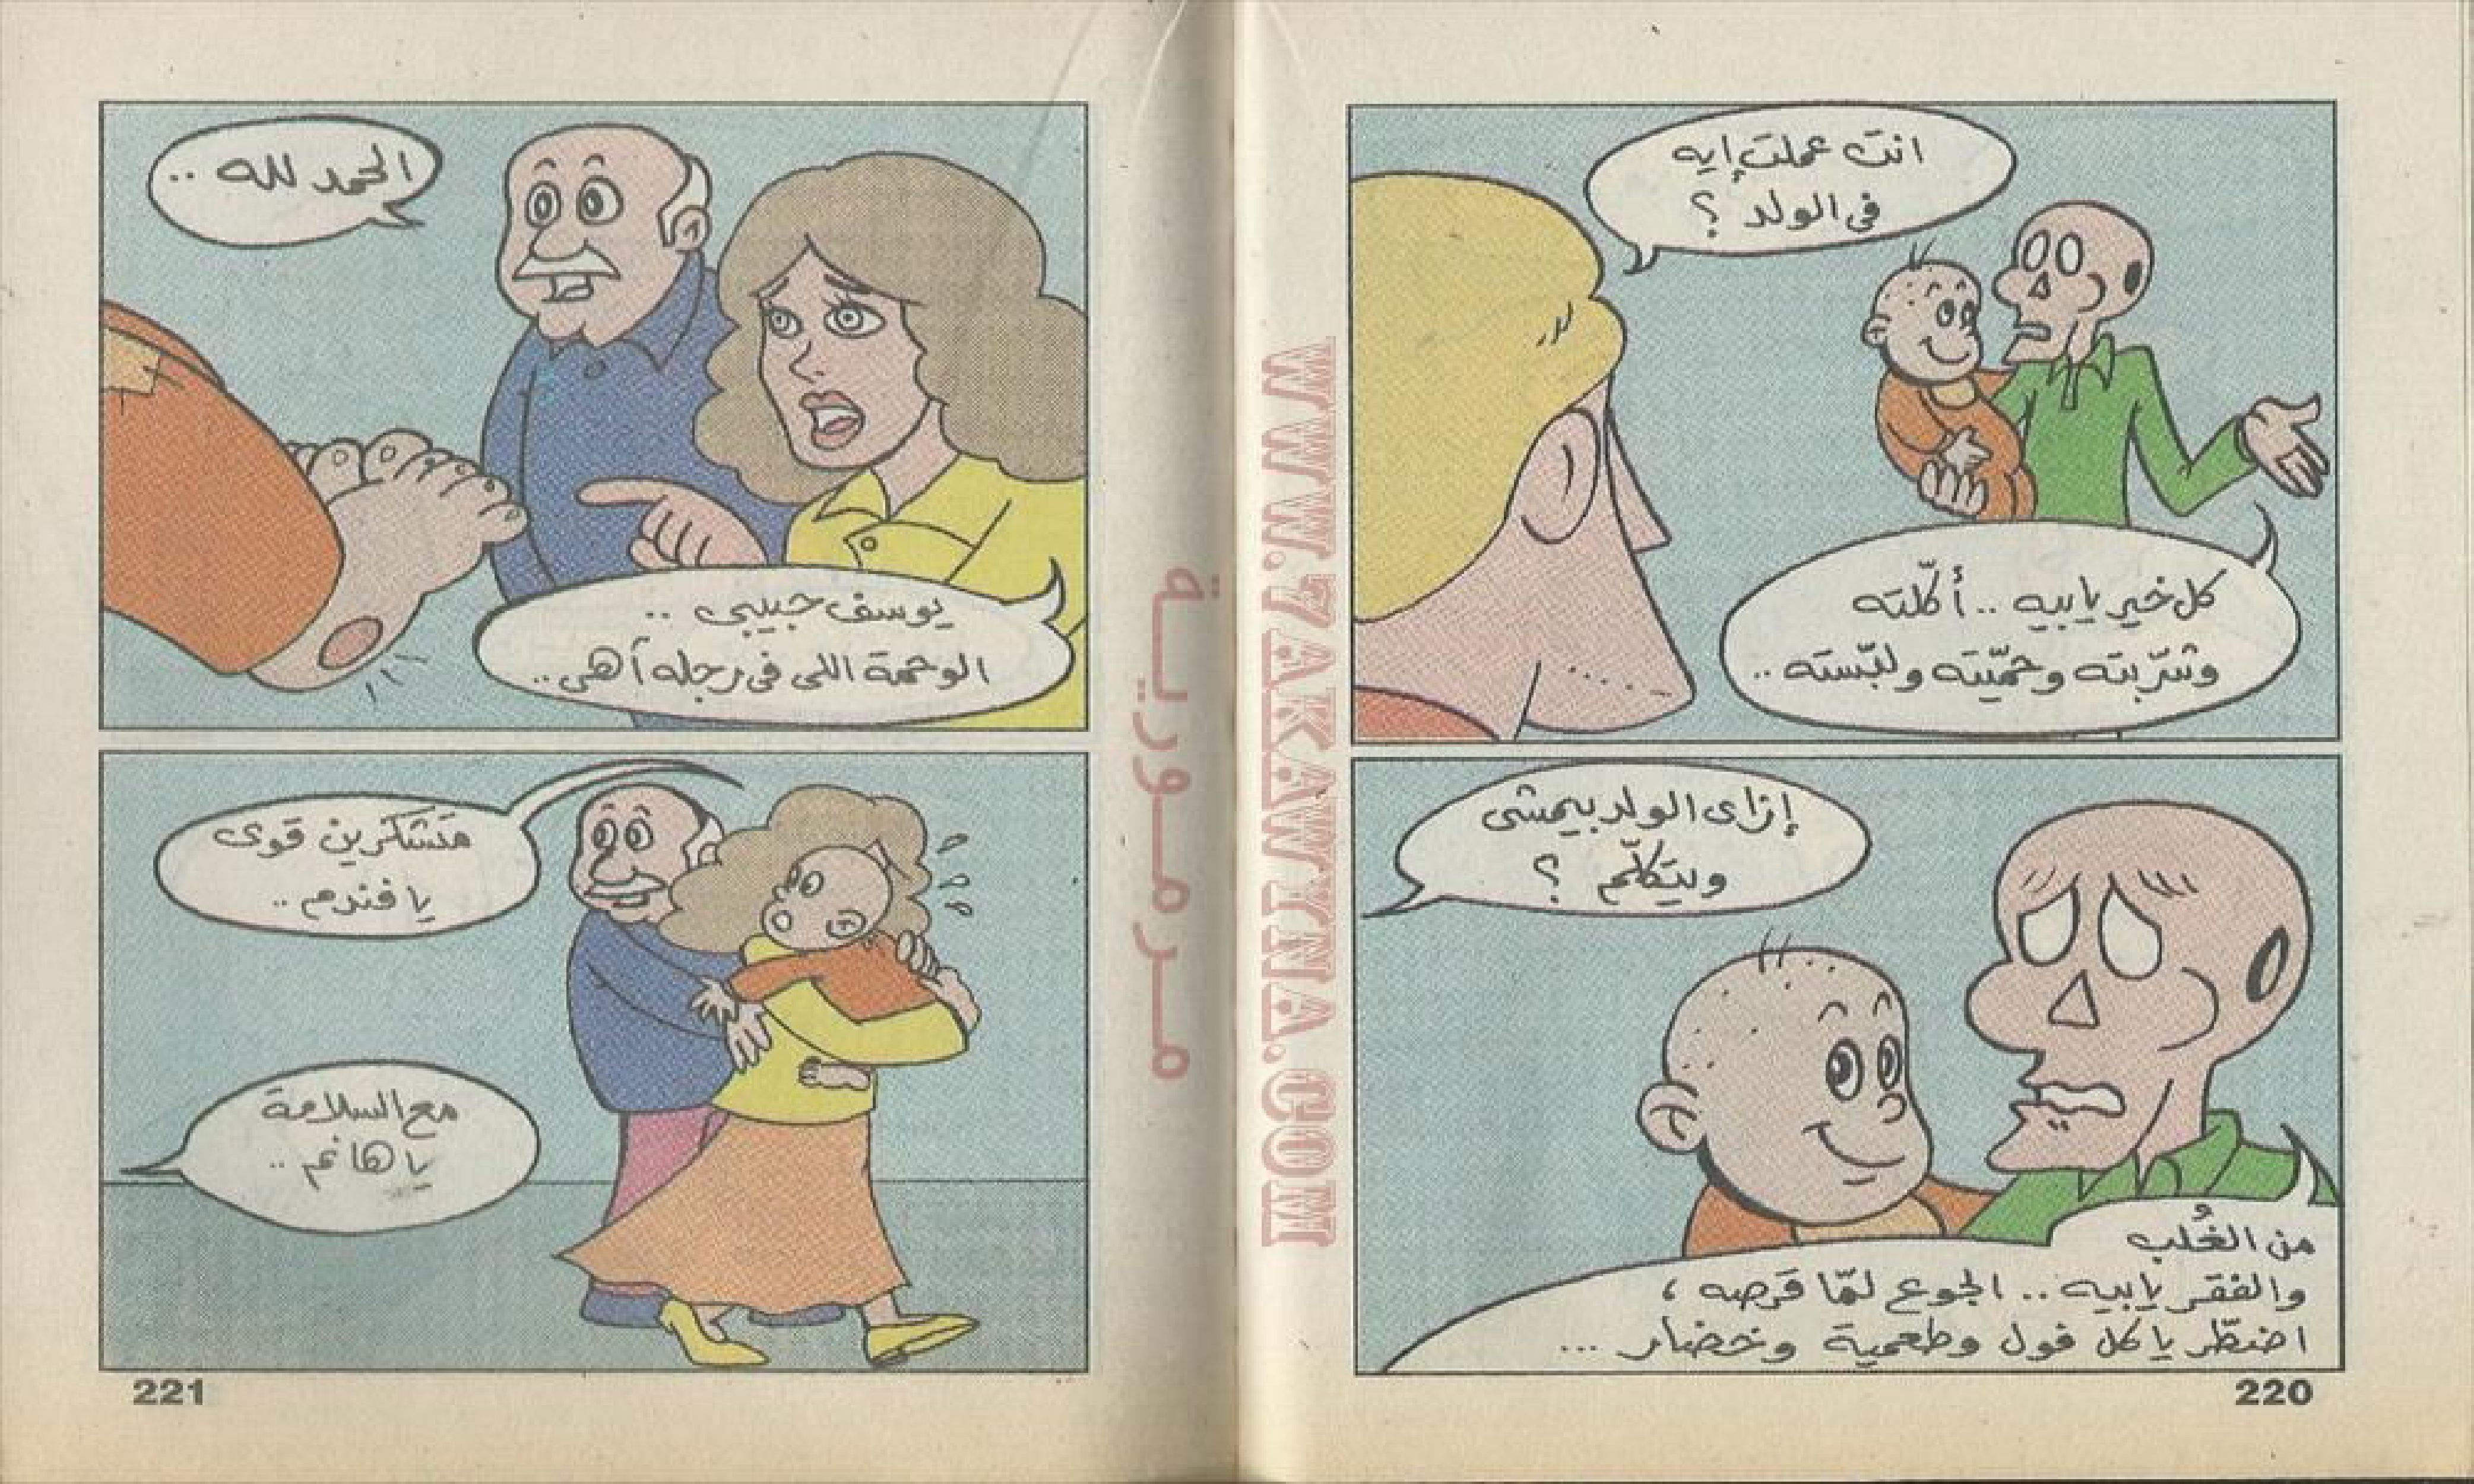 انت عملت إيه
في الولد ؟
كل خير يا بيه .. أكّلته
وشرّبته وحمّيته ولبّسته ..
إزاى الولد بيمشى
وبيتكلّم ؟
من الغُلب
والفقر يا بيه .. الجوع لمّا قَرصه ،
اضطّر ياكل فول وطعمية وخضار ...
220
الحمد لله ..
يوسف حبيبى ..
الوحمة اللى فى رجله أهى ..
متشكرين قوى
يا فندم ..
مع السلامة
يا هانم ..
221
مرمورية
WWW.7AKAWYNA.COM